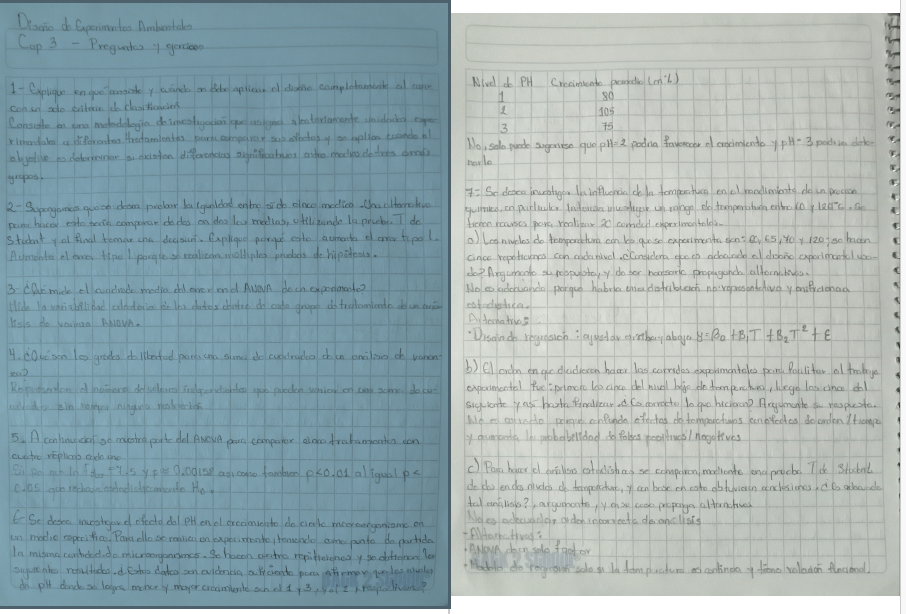 Diseño de Experimentos Ambientales
Cap 3 - Preguntas y ejercicios
1- Explique en qué consiste y cuándo se debe aplicar el diseño completamente al azar
con un solo criterio de clasificación
Consiste en una metodología de investigación que asigna aleatoriamente unidades expe-
rimentales a diferentes tratamientos para comparar sus efectos y se aplica cuando el
objetivo es determinar si existen diferencias significativas entre medias de tres o más
grupos.
2- Supongamos que se desea probar la igualdad entre sí de cinco medias. Una alternativa
para hacer esto sería comparar de dos en dos las medias, utilizando la prueba T de
Student y al final tomar una decisión. Explique porqué esto aumenta el error tipo I.
Aumenta el error tipo I porque se realizan múltiples pruebas de hipótesis.
3- ¿Qué mide el cuadrado medio del error en el ANOVA de un experimento?
Mide la variabilidad aleatoria de los datos dentro de cada grupo de tratamiento de un aná-
lisis de varianza ANOVA.
4- ¿Qué son los grados de libertad para una suma de cuadrados de un análisis de varian-
za?
Representan el número de valores independientes que pueden variar en una suma de cua-
drados sin romper ninguna restricción
5- A continuación se muestra parte del ANOVA para comparar cinco tratamientos con
cuatro réplicas cada uno
0.05 que rechaza estadísticamente H₀.
6- Se desea investigar el efecto del PH en el crecimiento de cierto microorganismo en
un medio específico. Para ello se realiza un experimento, teniendo como punto de partida
la misma cantidad de microorganismos. Se hacen cuatro repeticiones y se obtienen los
siguientes resultados. ¿Estos datos son evidencia suficiente para afirmar que los niveles
de pH donde se logra menor y mayor crecimiento son el 1 y 3, y el 2, respectivamente?
Nivel de PH Crecimiento promedio (en %)
1 80
2 105
3 75
No, solo puede sugerirse que pH=2 podría favorecer el crecimiento y pH=3 podría dete-
nerlo
7- Se desea investigar la influencia de la temperatura en el rendimiento de un proceso
químico, en particular interesa investigar un rango de temperatura entre 60 y 120°C. Se
tienen recursos para realizar 20 corridas experimentales.
a) Los niveles de temperatura con los que se experimenta son: 60, 65, 70 y 120; se hacen
cinco repeticiones con cada nivel. ¿Considera que es adecuado el diseño experimental usa-
do? Argumente su respuesta, y de ser necesario proponga alternativas.
No es adecuado porque habría una distribución no representativa y
estadística.
Alternativa:
• Diseño de regresión: y=β₀ + β₁T + β₂T² + ε
b) El orden en que decidieron hacer las corridas experimentales para facilitar el trabajo
experimental fue: primero los cinco del nivel bajo de temperatura, luego los cinco del
siguiente y así hasta finalizar. ¿Es correcto lo que hicieron? Argumente su respuesta.
No es correcto porque confunde efectos de temperatura con efectos de orden/tiempo
y aumenta la probabilidad de falsos positivos/negativos
c) Para hacer el análisis estadístico se comparan, mediante una prueba T de Student
de dos en dos niveles de temperatura, y con base en esto obtuvieron conclusiones. ¿Es adecuado
tal análisis?, argumente, y en su caso proponga alternativas
No es adecuado, orden incorrecto de análisis
-Alternativas:
• ANOVA de un solo factor
• Modelo de regresión solo si la temperatura es continua y tiene relación funcional.